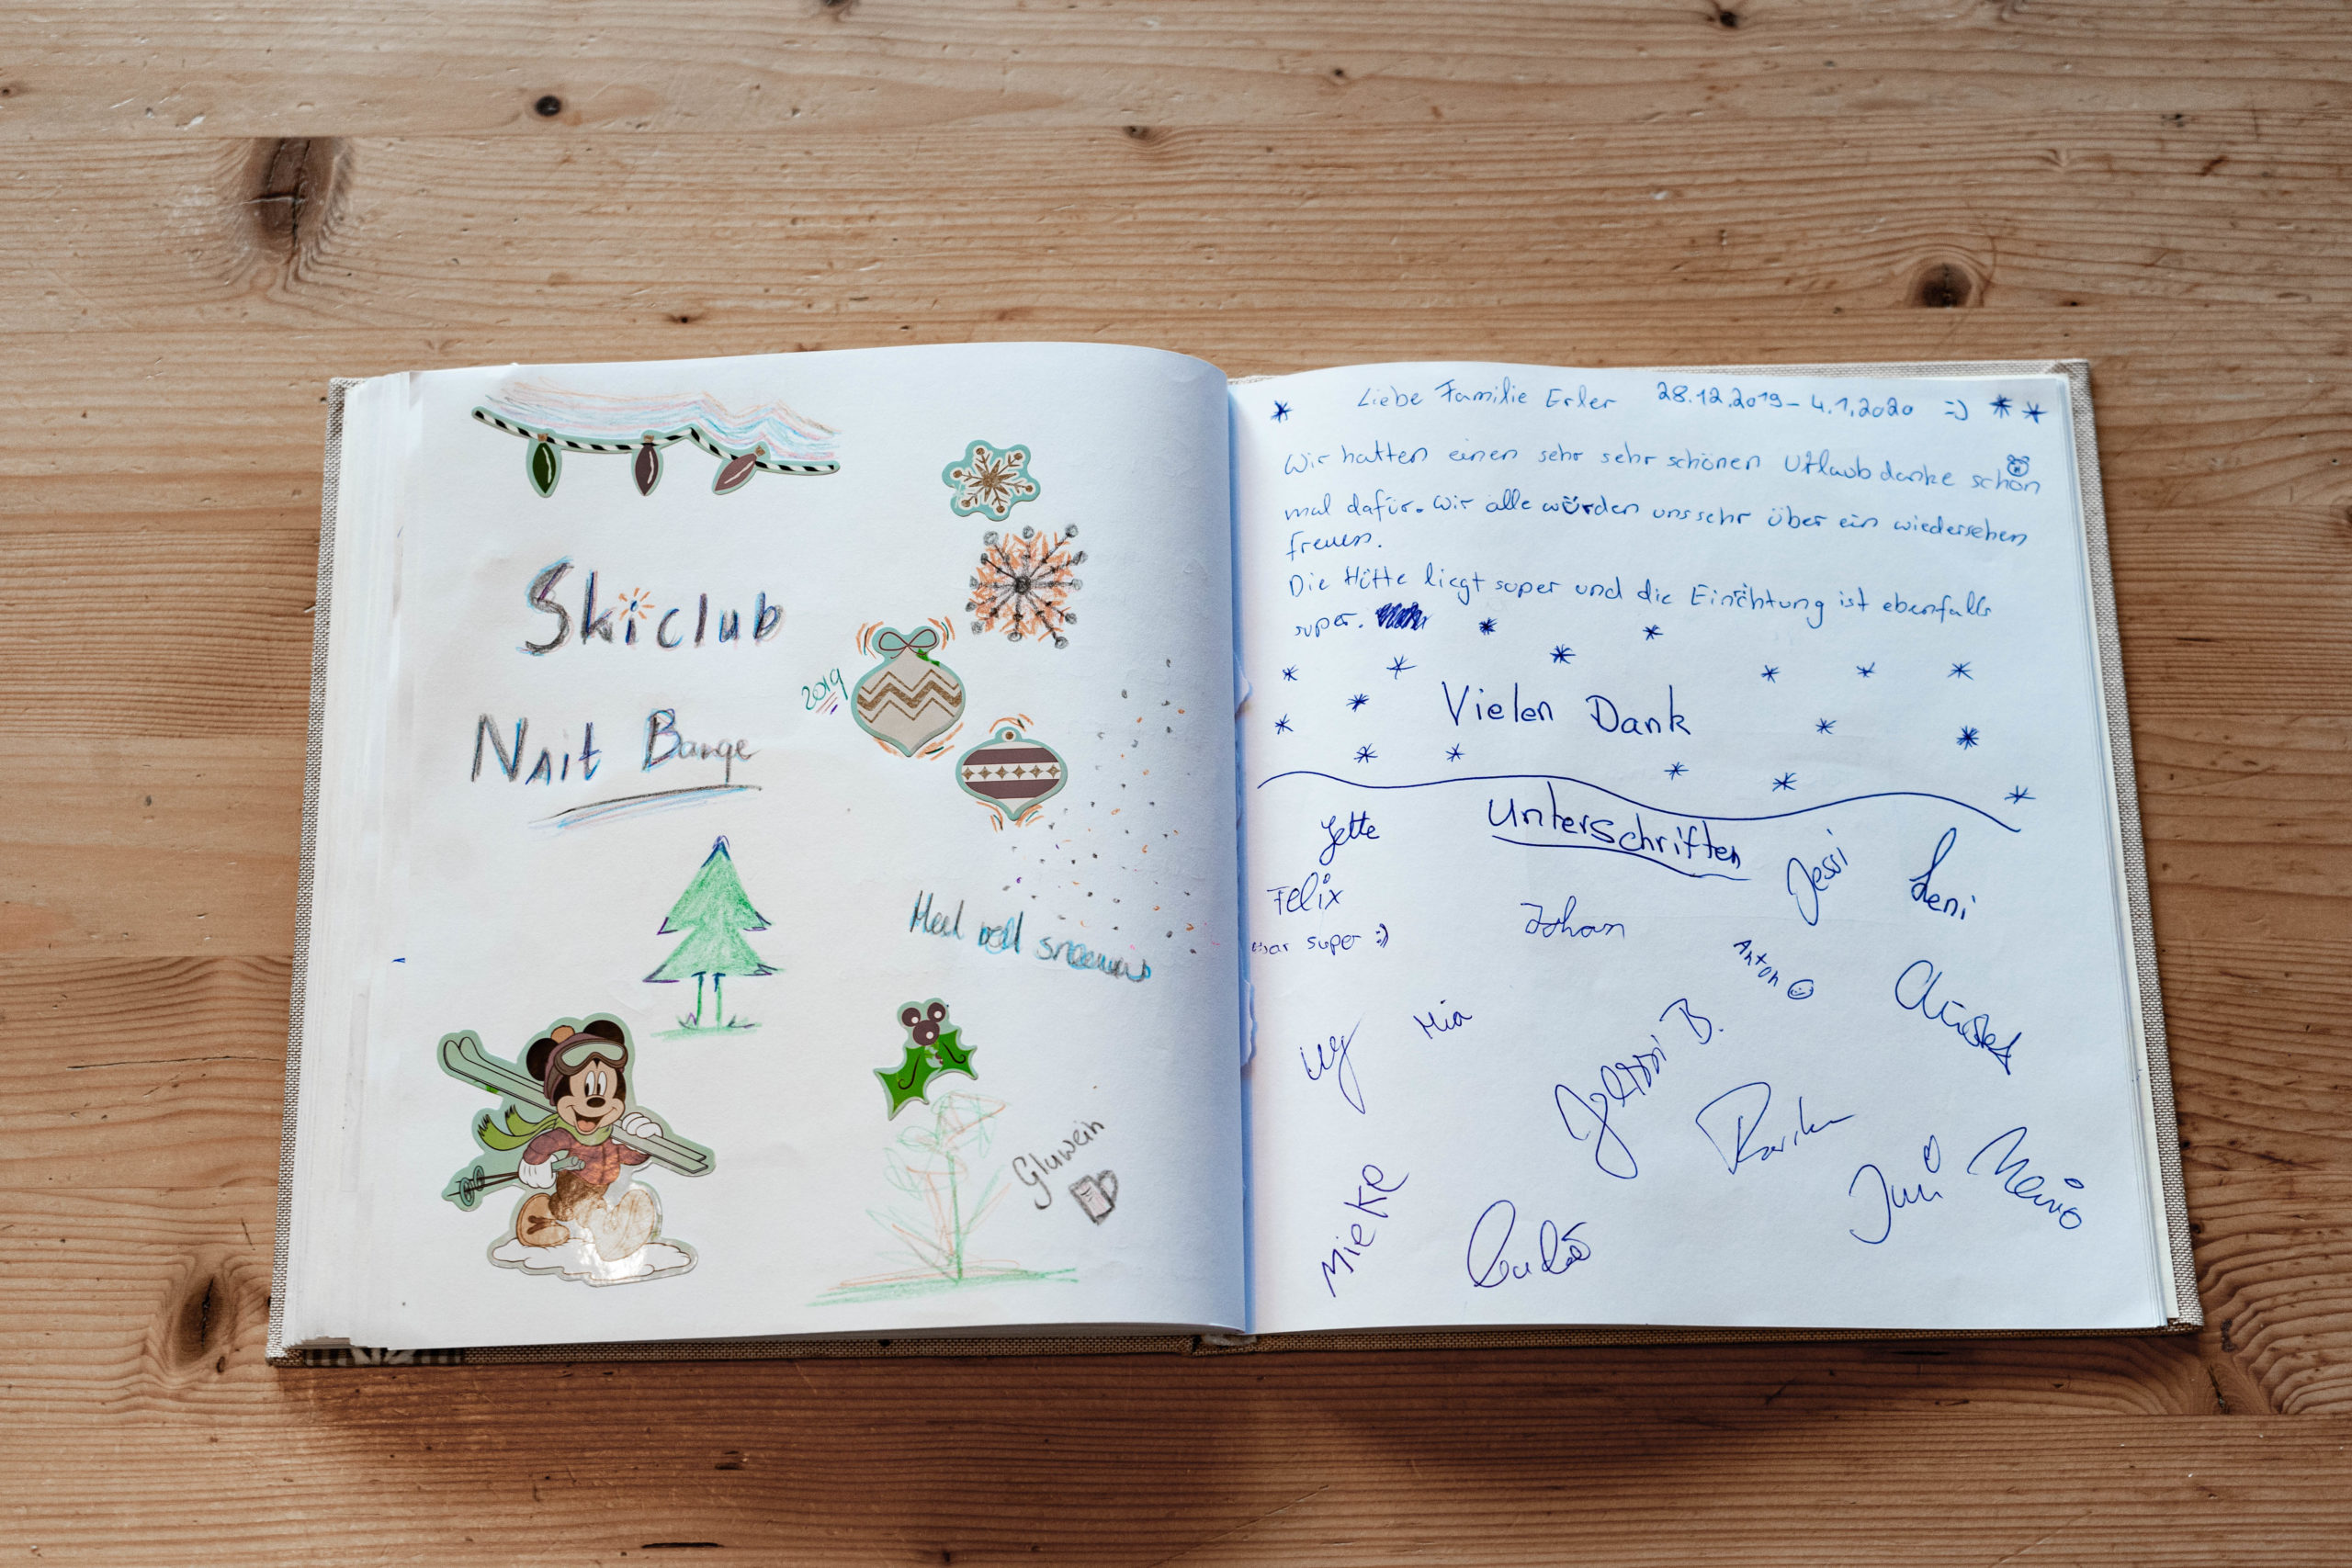 Skiclub
Nait Bange
2019
Gluwein
Liebe Familie Erler 28.12.2019 – 4.1.2020 =)
Wir hatten einen sehr sehr schönen Urlaub danke schön
mal dafür. Wir alle würden uns sehr über ein wiedersehen
freuen.
Die Hütte liegt super und die Einrichtung ist ebenfalls
super.
Vielen Dank
Unterschriften
Jette
Jessi
Leni
Felix
war super :)
Johan
Anton
Mia
Jessi B.
Mieke